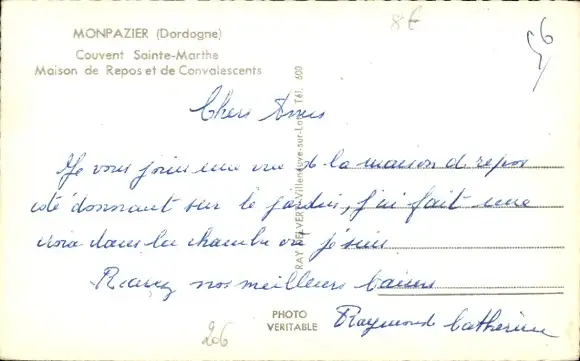 MONPAZIER (Dordogne)
Couvent Sainte-Marthe
Maison de Repos et de Convalescents
8€
56
Chers Amis
Je vous joins une vue de la maison d repos
coté donnant sur le jardin, j'ai fait une
croix dans la chambre ou je suis
Recevez nos meilleurs baisers
Raymond Catherine
RAY DELVERT, Villeneuve-sur-Lot Tél. 600
PHOTO
VERITABLE
206